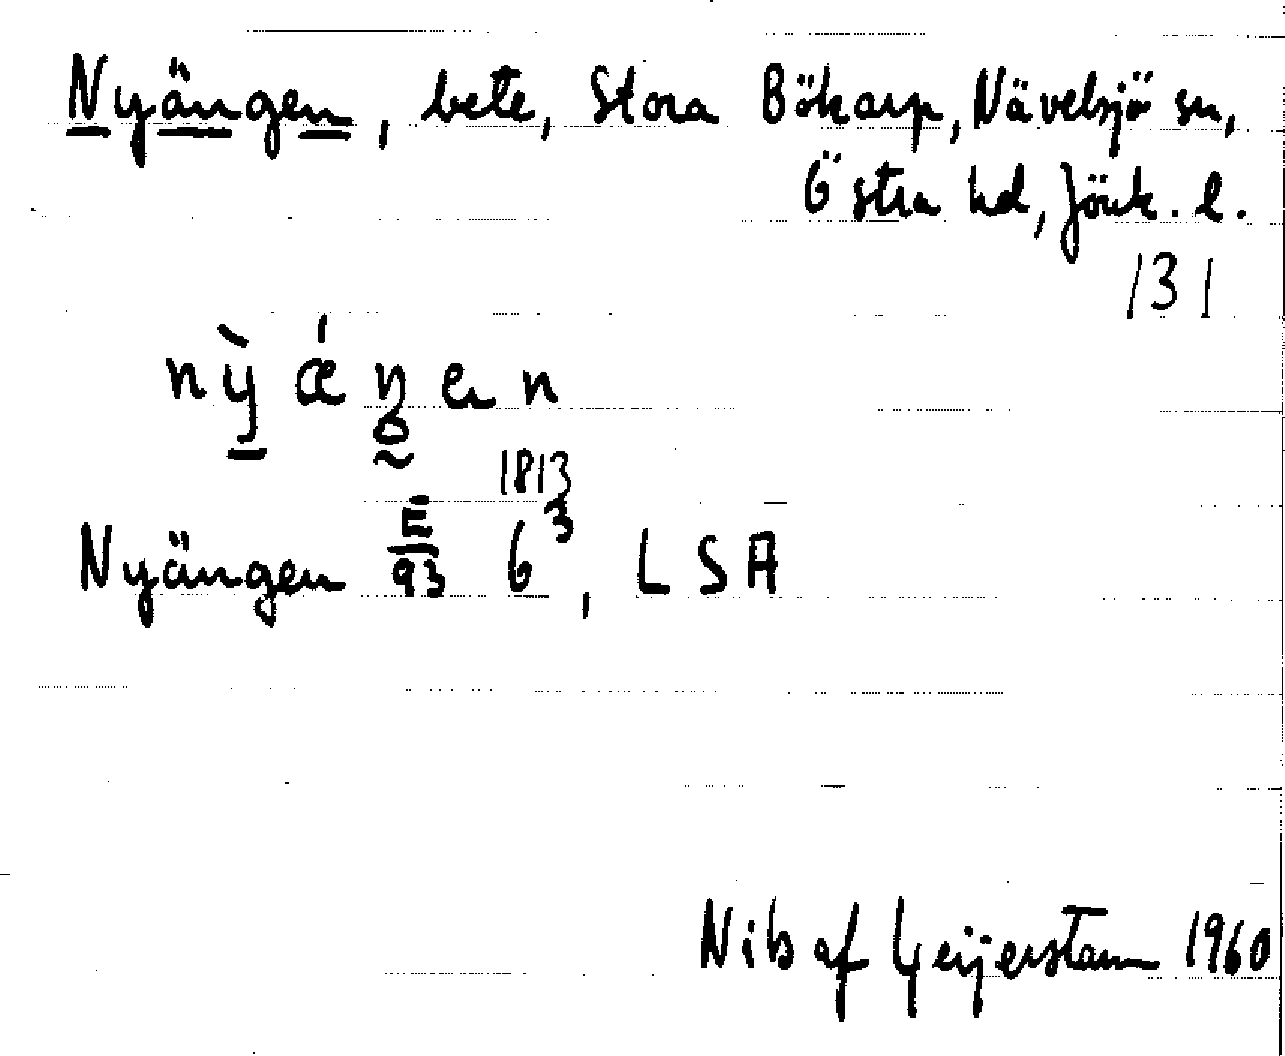 Nyängen, bete, Stora Bökarp, Nävelsjö sn,
Östra hd, Jönk. l.
131
nỳǽŋen
1813
Nyängen E/93 6³, LSA
Nils af Geijerstam 1960